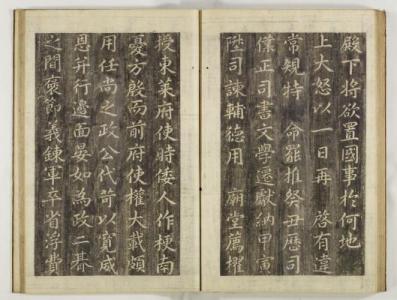 殿下将欲置國事於何地
上大怒以一日再 啓有違
常規特 命罷推癸丑歷司
僕正司書文學還獻納甲寅
陞司諫輔德用 廟堂薦擢
授東萊府使時倭人作梗南
憂方殷而前府使權大載頗
用任尚之政公代前以寬威
恩并行邊面晏如為政二朞
之間褒節義鍊軍卒省浮費